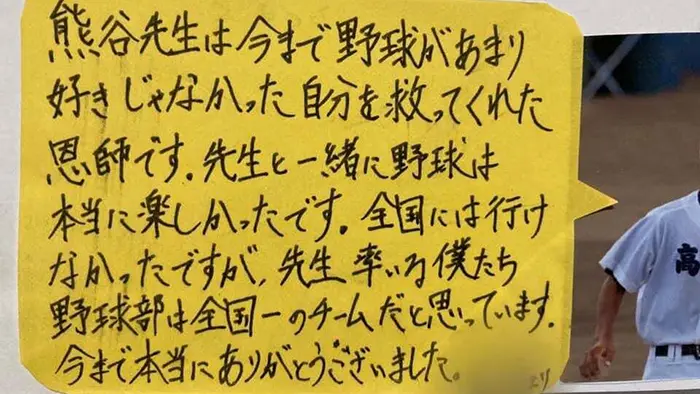 熊谷先生は今まで野球があまり
好きじゃなかった自分を救ってくれた
恩師です。先生と一緒に野球は
本当に楽しかったです。全国には行け
なかったですが、先生率いる僕たち
野球部は全国一のチームだと思っています。
今まで本当にありがとうございました。
より
高